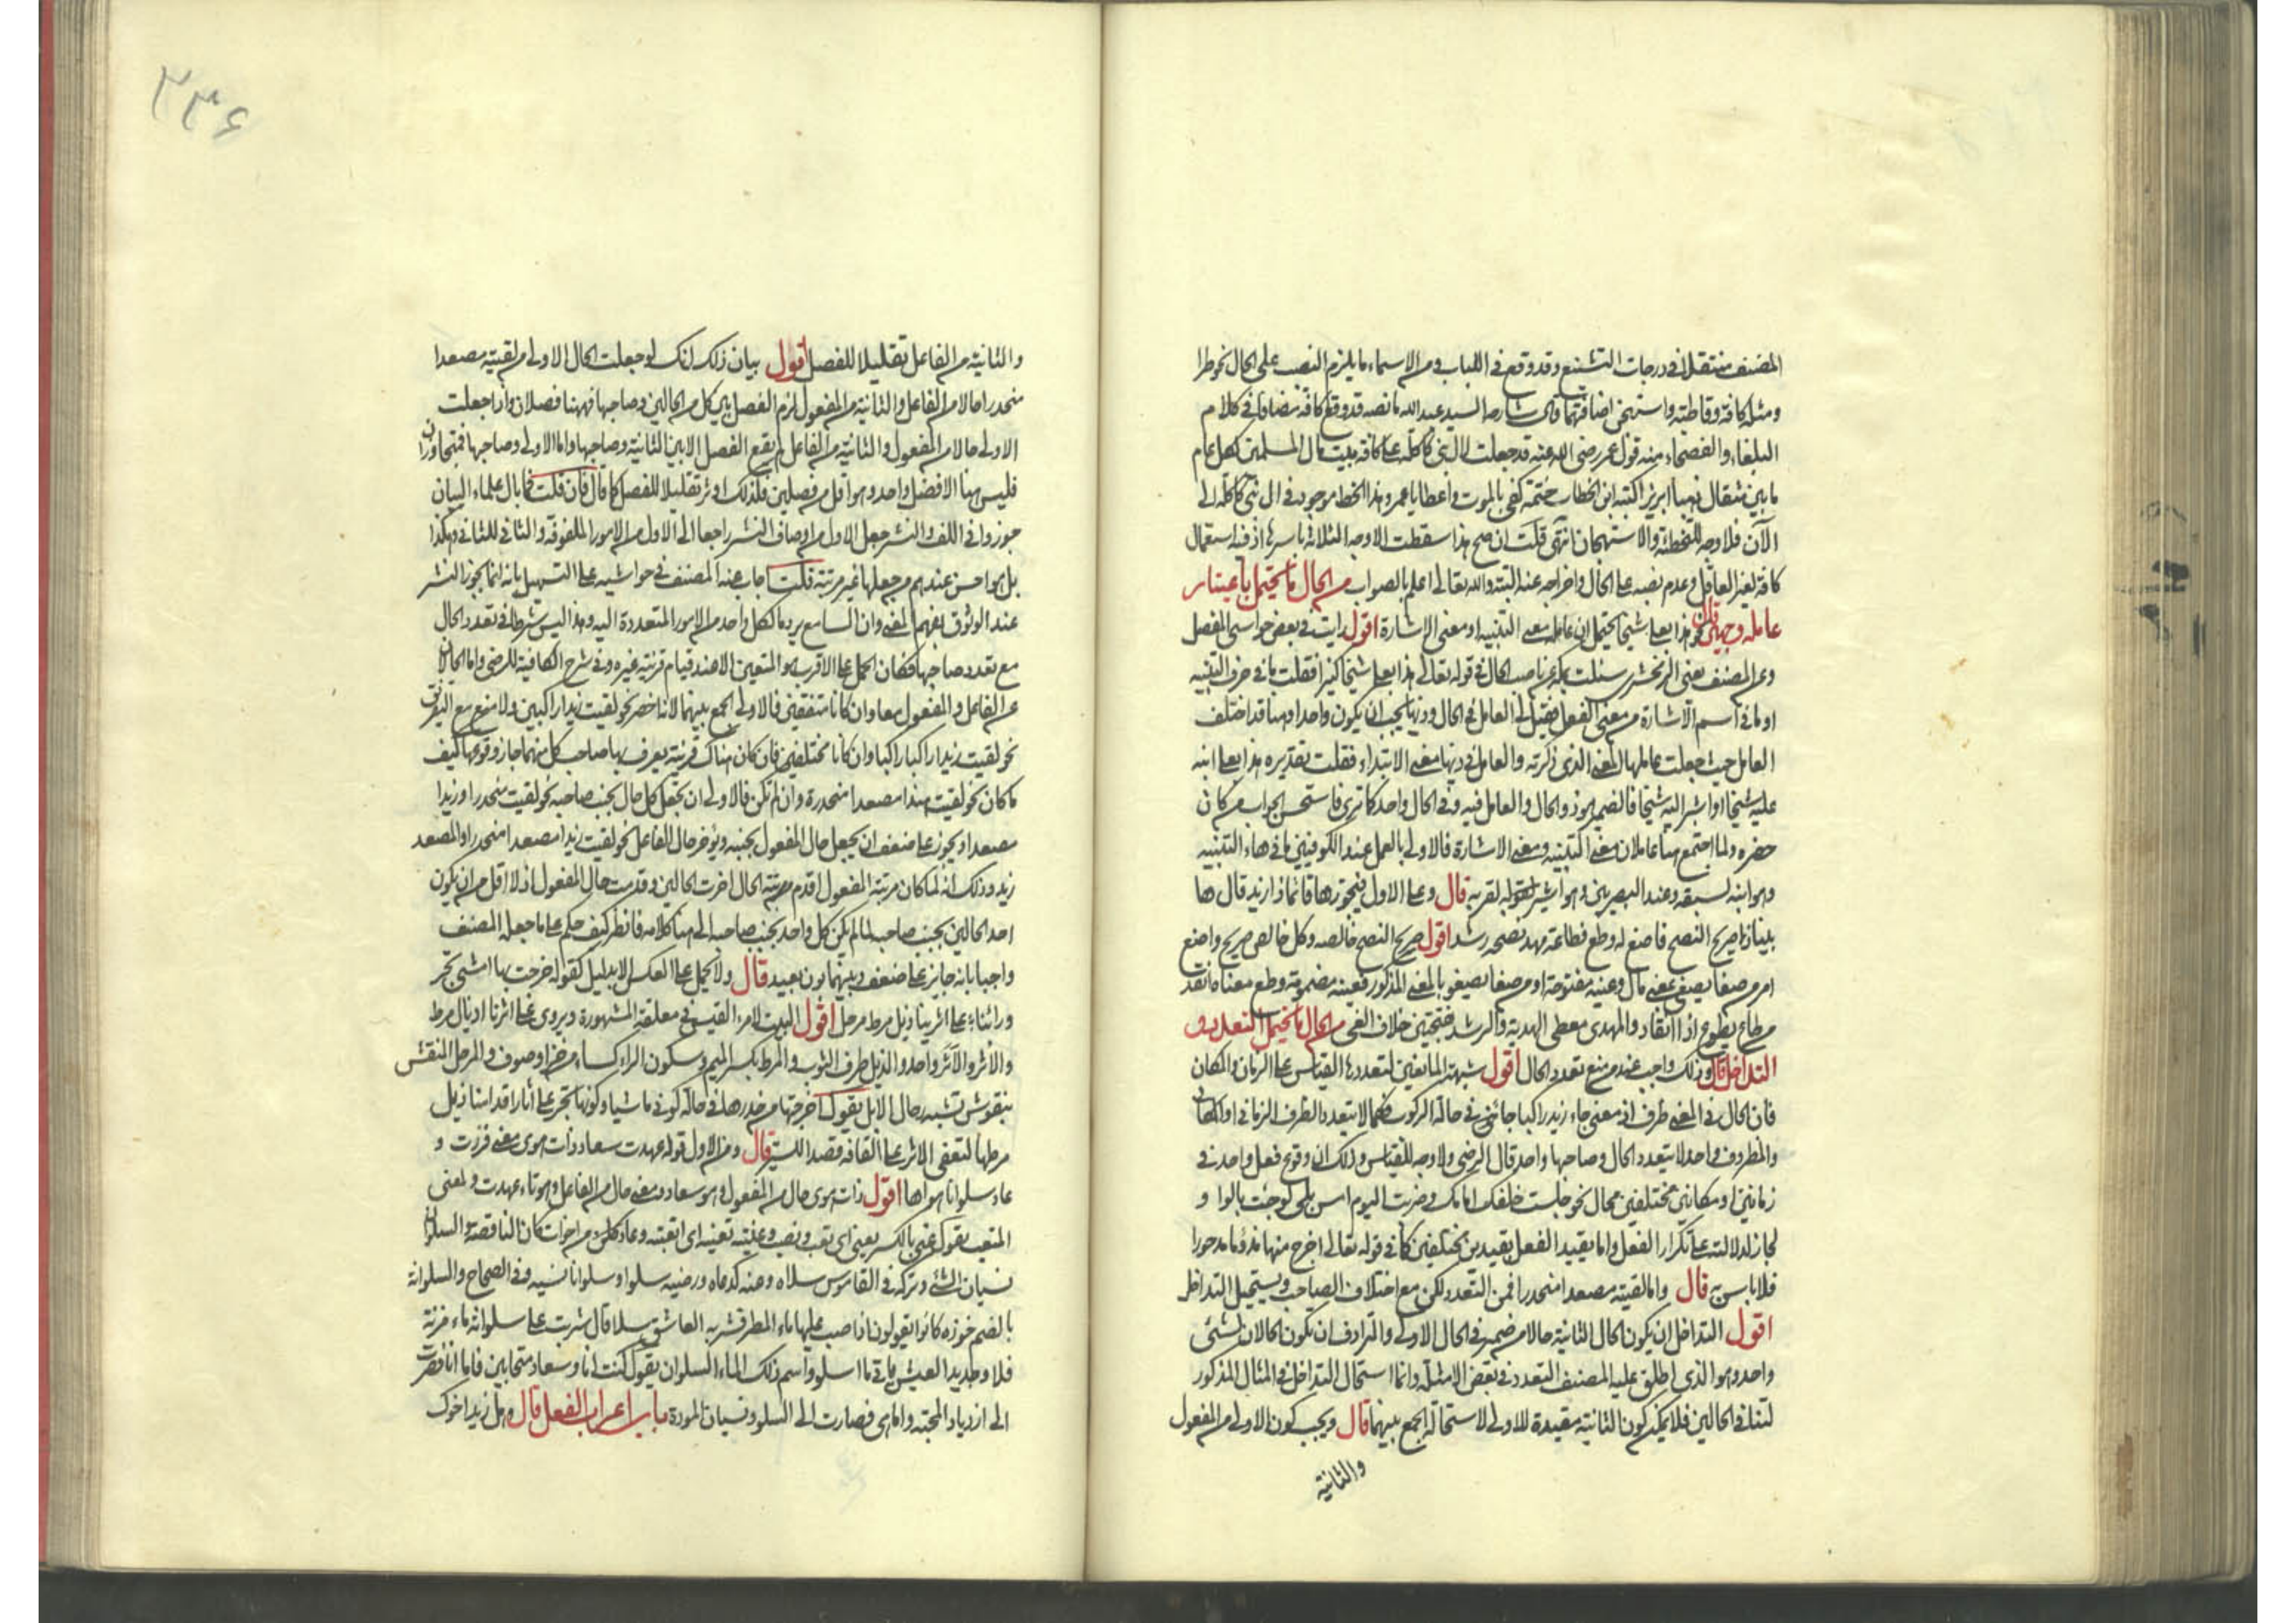 المصنف منتقلا في درجات التشنيع وقد وقع في اللباب ومن الاسماء ما يلزم النصب على الحال نحو طرا
ومثله كافة وقاطبة واستهجن اضافتهما قال شارحه السيد عبد الله ما نصه قد وقع كافة مضافا في كلام
البلغاء والفصحاء منه قول عمر رضى الله عنه قد جعلت لال بنى كاكلة على كافة بيت مال المسلمين لكل عام
مايتى مثقال ذهبا ابريزا كتبه ابن الخطاب ختمه كفى بالموت واعظا يا عمر وهذا الخط موجود في ال بنى كاكلة الى
الآن فلا وجه للتخطئة والاستهجان انتهى قلت ان صح هذا سقطت الاوجه الثلاثة باسرها اذ فيه استعمال
كافة لغير العاقل وعدم نصبه على الحال واخراجه عنه البتة والله تعالى اعلم بالصواب من الحال ما يحتمل باعتبار
عامله وجهين قال نحو هذا بعلى شيخا يحتمل ان عامله معنى التنبيه او معنى الاشارة اقول رايت في بعض حواشى المفصل
وعن المصنف يعنى الزمخشرى سئلت بمكة عن ناصب الحال في قوله تعالى هذا بعلى شيخا كبيرا فقلت ما في حرف التنبيه
او ما في اسم الاشارة من معنى الفعل فقيل لى العامل في الحال وذيها يجب ان يكون واحدا وهنا قد اختلف
العامل حيث جعلت عاملها المعنى الذى ذكرته والعامل في ذيها معنى الابتداء فقلت تقديره هذا بعلى انبه
عليه شيخا او اشير اليه شيخا فالضمير هو ذو الحال والعامل فيه وفي الحال واحد كما ترى فاستحسن الجواب من كان
حضره ولما اجتمع هنا عاملان معنى التنبيه ومعنى الاشارة فالاولى بالعمل عند الكوفيين ما في هاء التنبيه
وهو انبه لسبقه وعند البصريين وهو اشير لقوله لقربه قال وعلى الاول فيجوز ها قائما ذا زيد قال ها
بينا ذا صريح النصح فاصغ له وطع فطاعة مهد نصحه رشد اقول صريح النصح خالصه وكل خالص صريح واصغ
امر من صغا يصغى بمعنى مال وعينه مفتوحة او من صغا يصغو بالمعنى المذكور فعينه مضمومة وطع معناه انقد
من طاع يطوع اذا انقاد والمهدى معطى الهدية والرشد بفتحتين خلاف الغى من الحال ما يحتمل التعدد و
التداخل قال وذلك واجب عند من منع تعدد الحال اقول شبهة المانعين لتعددها القياس على الزمان والمكان
فان الحال في المعنى ظرف اذ معنى جاء زيد راكبا جائنى في حالة الركوب فكما لا يتعدد الظرف الزمانى او المكانى
والمظروف واحد لا يتعدد الحال وصاحبها واحد قال الرضى ولا وجه للقياس وذلك ان وقوع فعل واحد في
زمانين او مكانين مختلفين محال نحو جلست خلفك امامك وضربت اليوم امس بلى لو جئت بالواو
لجاز لدلالته على تكرار الفعل واما تقييد الفعل بقيدين مختلفين كما في قوله تعالى اخرج منها مذؤما مدحورا
فلا باس به قال واما لقيته مصعدا منحدرا فمن التعدد لكن مع اختلاف الصاحب ويستحيل التداخل
اقول التداخل ان يكون الحال الثانية حالا من ضمير في الحال الاولى والترادف ان تكون الحالان لشئ
واحد وهو الذى اطلق عليه المصنف التعدد في بعض الامثلة وانما استحال التداخل في المثال المذكور
لتنافى الحالين فلا يمكن كون الثانية مقيدة للاولى لاستحالة الجمع بينهما قال ويجب كون الاولى من المفعول
والثانية
٣٣۶
والثانية من الفاعل تقليلا للفصل اقول بيان ذلك انك لو جعلت الحال الاولى من لقيته مصعدا
منحدرا حالا من الفاعل والثانية من المفعول لزم الفصل بين كل من الحالين وصاحبها فههنا فصلان واذا جعلت
الاولى حالا من المفعول والثانية من الفاعل لم يقع الفصل الا بين الثانية وصاحبها واما الاولى وصاحبها فمتجاوران
فليس هنا الا فصل واحد وهو اقل من فصلين فلذلك اوثر تقليلا للفصل كما قال فان قلت فما بال علماء البيان
جوزوا في اللف والنشر جعل الاول من اوصاف النشر راجعا الى الاول من الامور الملفوفة والثانى للثانى وهكذا
بل هو احسن عندهم من جعلها غير مرتبة قلت اجاب عنه المصنف في حواشيه على التسهيل بانه انما يجوز النشر
عند الوثوق بفهم المعنى وان السامع يرد ما لكل واحد من الامور المتعددة اليه وهذا ليس شرطا في تعدد الحال
مع تعدد صاحبها فكان الحمل على الاقرب هو المتعين الا عند قيام قرينة غيره وفي شرح الكافية للرضى واما الحالان
عن الفاعل والمفعول معا وان كانا متفقتين فالاولى الجمع بينهما لانه اخصر نحو لقيت زيدا راكبين ولا منع مع التفريق
نحو لقيت زيدا راكبا راكبا وان كانا مختلفين فان كان هناك قرينة يعرف بها صاحب كل منهما جاز وقوعها كيف
ما كان نحو لقيت هندا مصعدا منحدرة وان لم تكن فالاولى ان تجعل كل حال بجنب صاحبه نحو لقيت منحدرا زيدا
مصعدا ويجوز على ضعف ان يجعل حال المفعول بجنبه ويؤخر حال الفاعل نحو لقيت زيدا مصعدا منحدرا والمصعد
زيد وذلك انه لما كان مرتبة المفعول اقدم مرتبة الحال اخرت الحالين وقدمت حال المفعول اذ لا اقل من ان يكون
احد الحالين بجنب صاحبه لما لم يكن كل واحد بجنب صاحبه الى هنا كلامه فانظر كيف حكم على ما جعله المصنف
واجبا بانه جايز على ضعف وبينهما بون بعيد قال ولا يحمل على العكس الا بدليل كقوله خرجت بها امشى تجر
ورائنا على اثرينا ذيل مرط مرحل اقول البيت لامرء القيس في معلقته المشهورة ويروى على اثرنا اذيال مرط
والأثر والاثر واحد والذيل طرف الثوب والمرط بكسر الميم وسكون الراء كساء من خز او صوف والمرحل المنقش
بنقوش تشبه رحال الابل يقول اخرجتها من خدرها في حالة كونى ماشيا وكونها تجر على آثار اقدامنا ذيل
مرطها لتعفى الاثر على القافة قصدا للستر قال ومن الاول قوله عهدت سعاد ذات هوى معنى فزدت و
عاد سلوانا هواها اقول ذات هوى حال من المفعول وهو سعاد ومعنى حال من الفاعل وهو تاء عهدت والمعنى
المتعب يقول عنى بالكسر يعنى اى تعب ونصب وعنيته تعنية اى اتعبته وعاد كان من اخوات كان الناقصة والسلوان
نسيان الشئ وتركه في القاموس سلاه وعنه كدعاه ورضيه سلوا وسلوانا نسيه وفي الصحاح والسلوانة
بالضم خرزة كانوا يقولون اذا صب عليها ماء المطر فشربه العاشق سلا قال شربت على سلوانة ماء مزنة
فلا وجديد العيش يا مى ما اسلو واسم ذلك الماء السلوان يقول كنت انا وسعاد متحابين فاما انا فصرت
الى ازدياد المحبة واما هى فصارت الى السلو ونسيان المودة باب اعراب الفعل قال وهل زيد اخوك